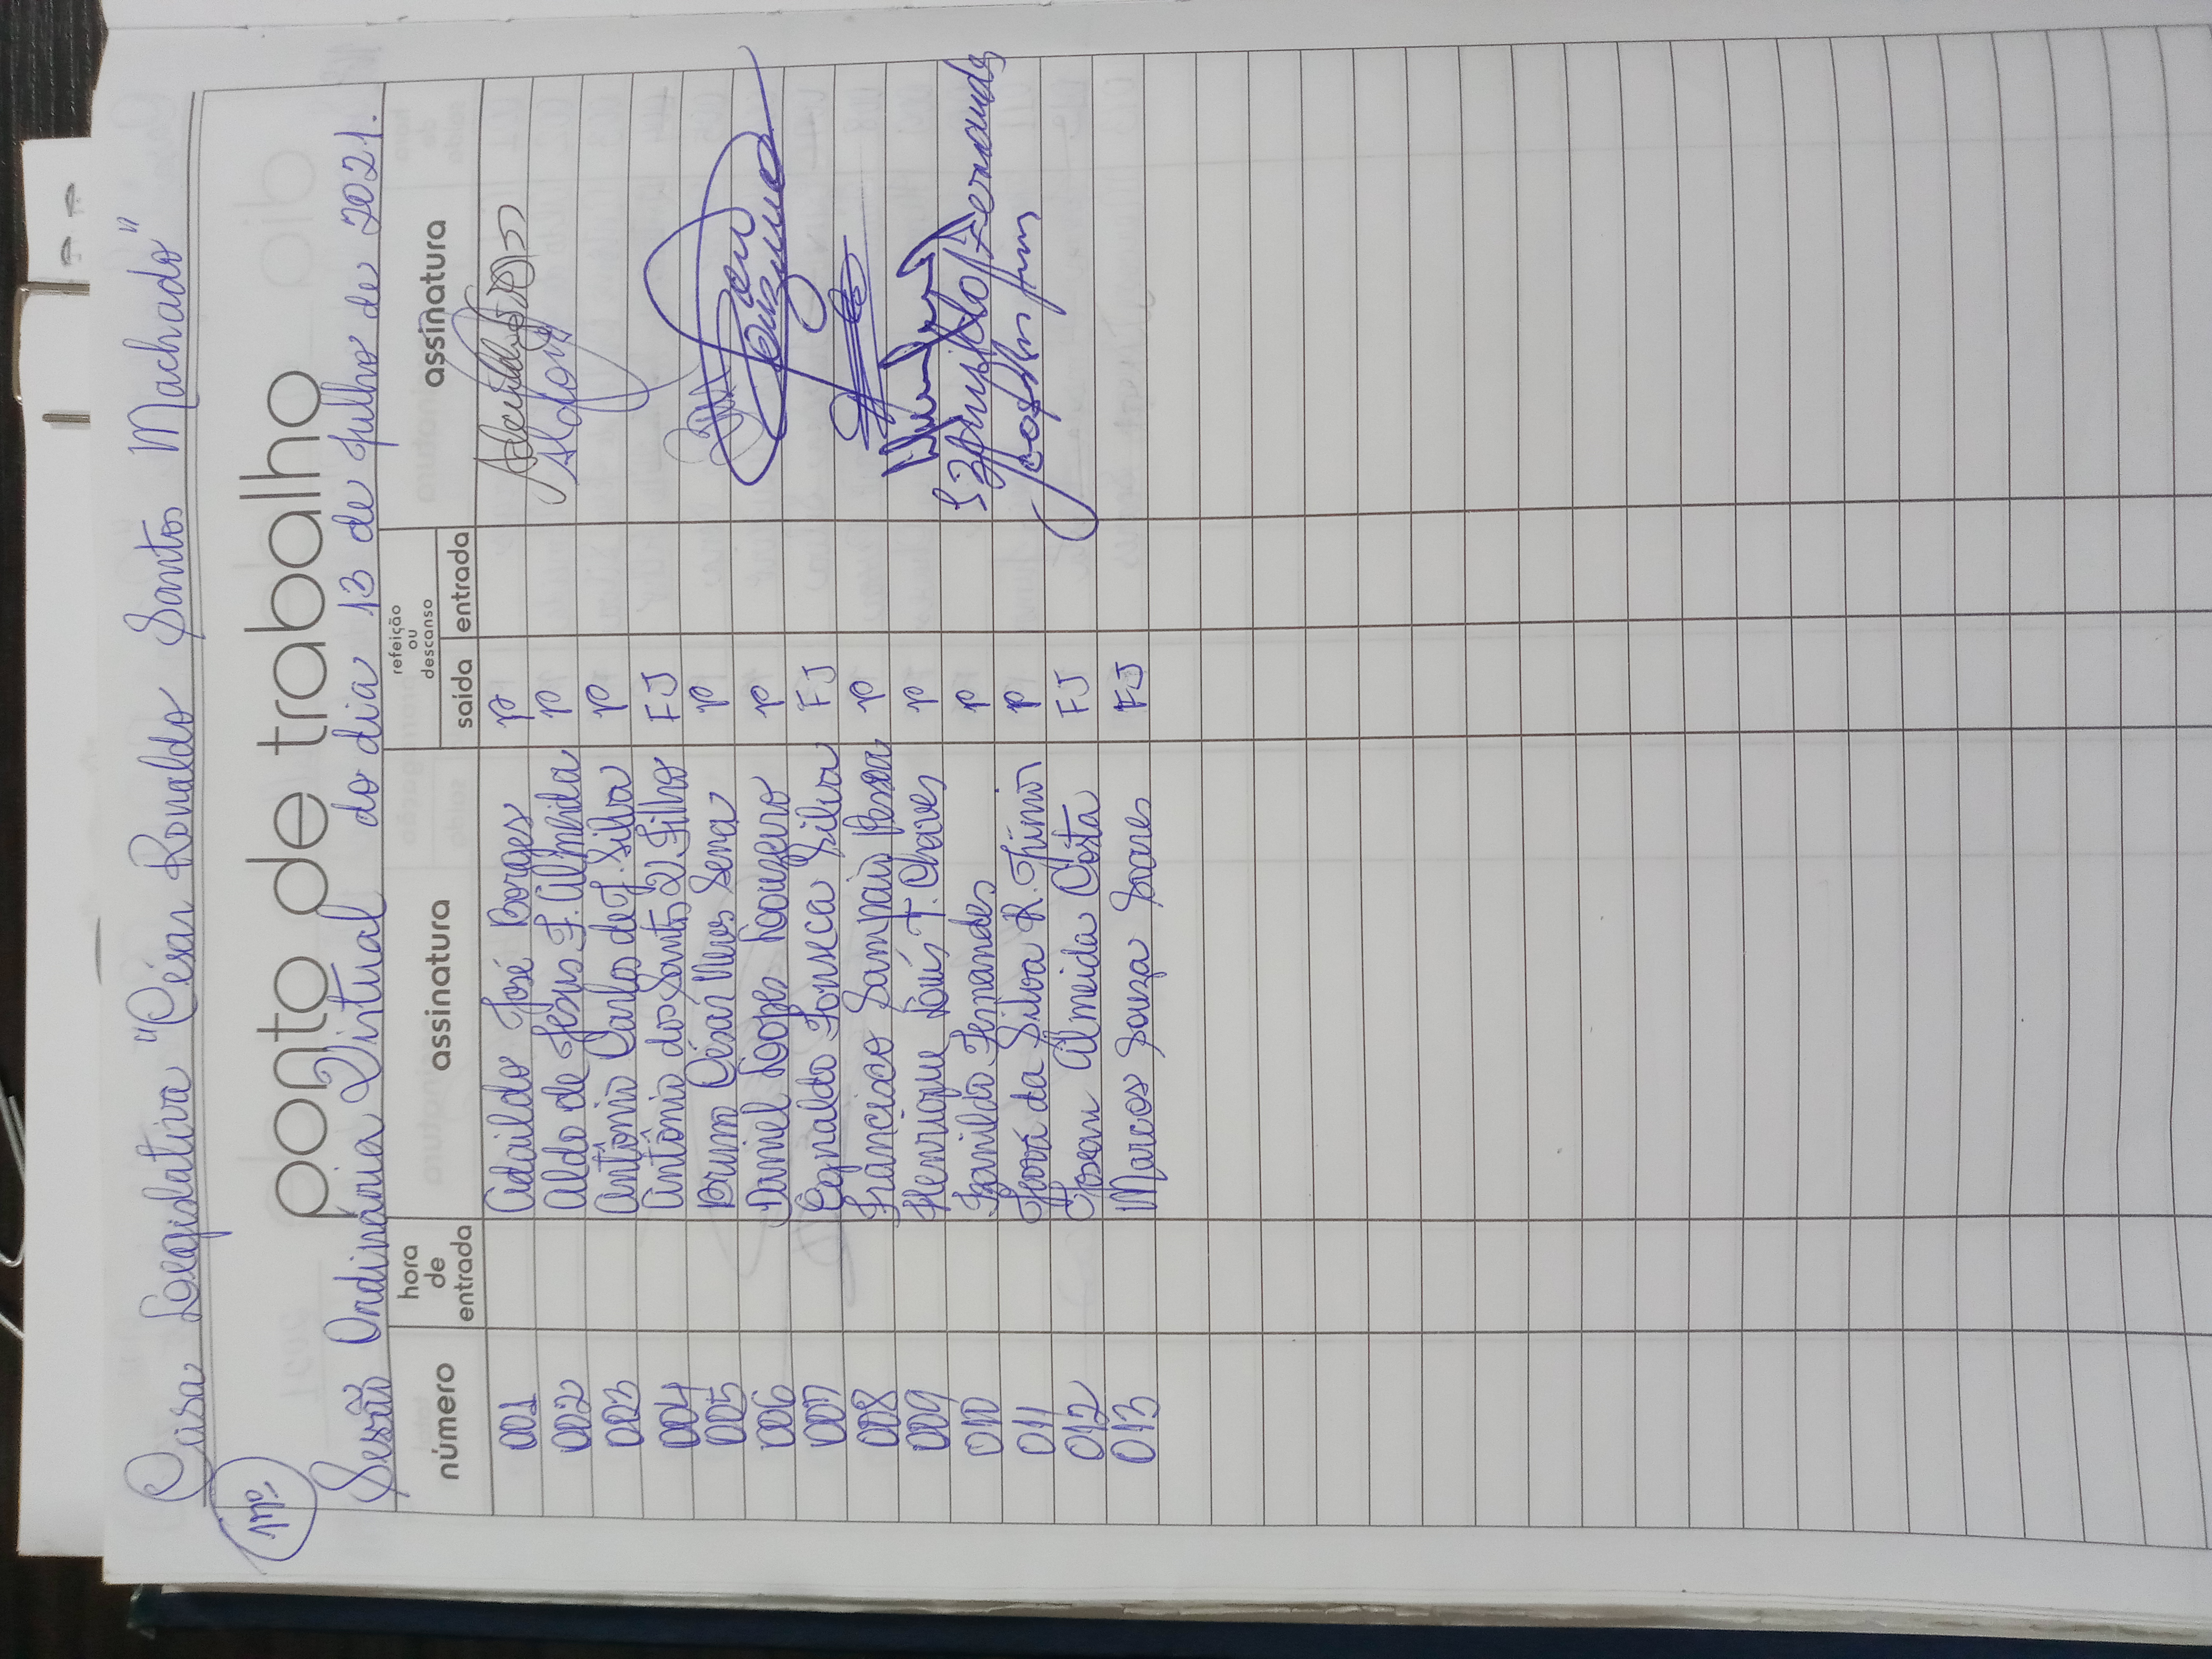 Casa Legislativa "César Ronaldo Santos Machado"
ponto de trabalho
Sessão Ordinária Virtual do dia 13 de Julho de 2021.
número hora de entrada assinatura refeição ou descanso saída entrada assinatura
001 Adaildo José Borges P
002 Aldo de Jesus F. Almeida P Aldo
003 Antônio Carlos de J. Silva P
004 Antônio dos Santos Filho FJ
005 Bruno César Sena P
006 Daniel Lopes Louzeiro P Louzeiro
007 Egnaldo Fonseca Silva FJ
008 Francisco Sampaio P
009 Henrique Louis T. Chaves P
010 Izanildo Fernandes P Izanildo Fernandes
011 Jová da Silva R. P
012 Josean Almeida Costa FJ
013 Marcos Souza Soares FJ